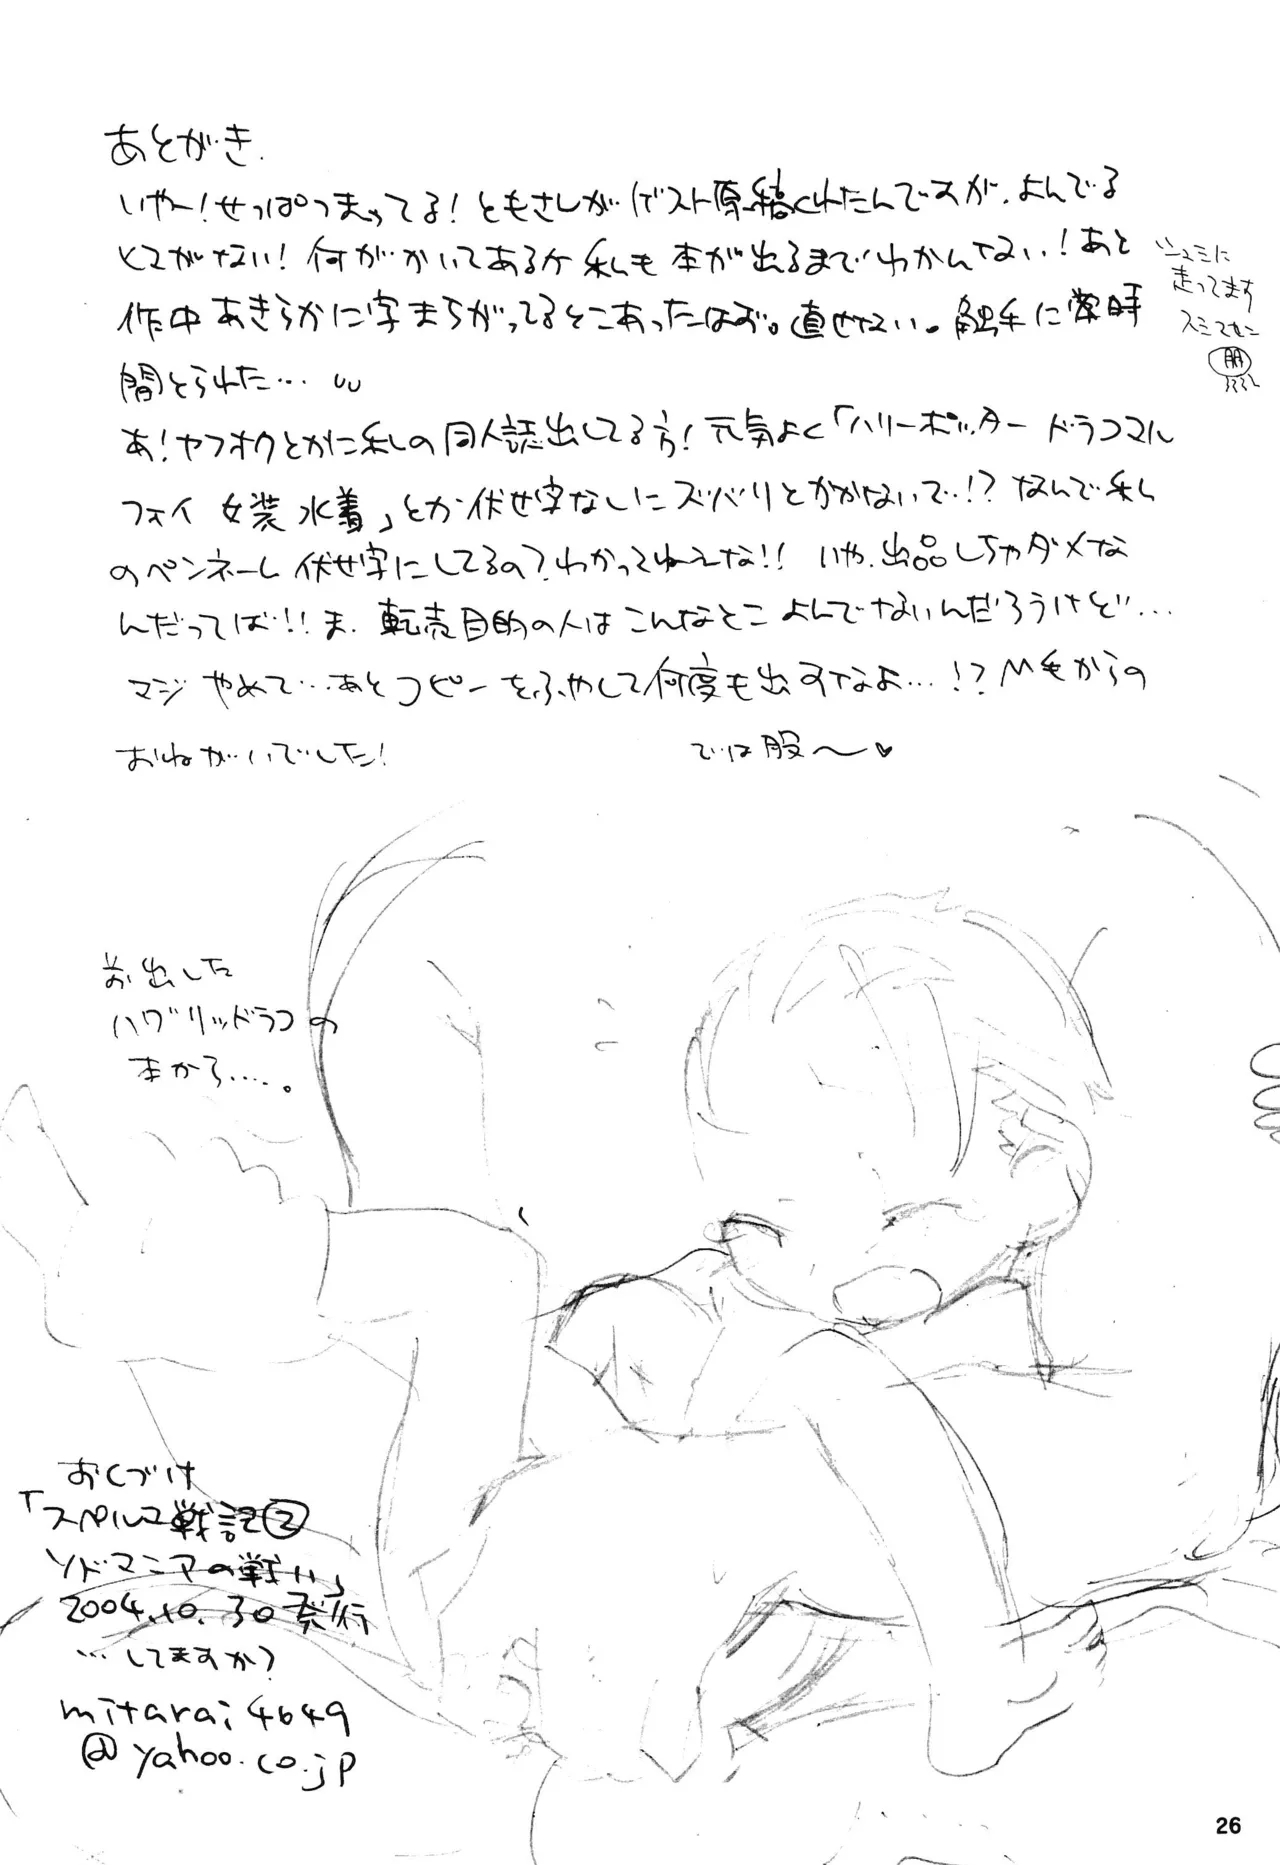 あとがき.
いやー!せっぱつまってる!ともさしがゲスト原稿くれたんですが、よんでる
ヒマがない!何がかいてあるか私も本が出るまでわかんない!あと
作中あきらかに字まちがってるとこあったはず。直せない。触手に常時
間とられた…
シュミに
走ってます
スミマセン
朋
あ!ヤフオクとかに私の同人誌出してる方!元気よく「ハリーポッタードラコマル
フォイ 女装 水着」とか伏せ字なしにズバリとかかないで!?なんで私
のペンネーム伏せ字にしてるの?わかってねえな!!いや、出品しちゃダメな
んだってば!!ま、転売目的の人はこんなとこよんでないんだろうけど…
マジやめて…あとコピーをふやして何度も出すなよ…!?M毛からの
おねがいでした!
では股〜♥
お出した
ハグリッドラコの
本から….。
おくづけ
「スペルマ戦記②
ソドマニアの戦い」
2004.10.30発行
…してますか?
mitarai4649
@yahoo.co.jp
26